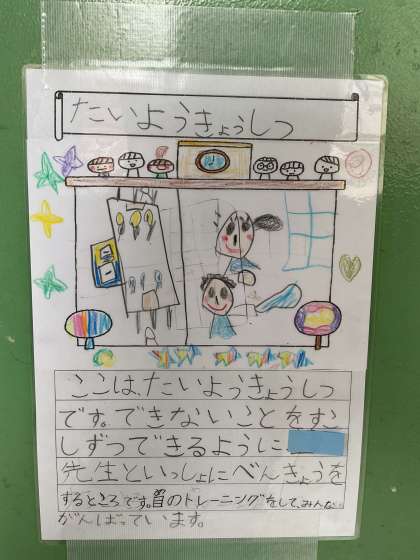 たいようきょうしつ
ここは、たいようきょうしつ
です。できないことをすこ
しずつできるように
先生といっしょにべんきょうを
するところです。習のトレーニングをして、みんな
がんばっています。